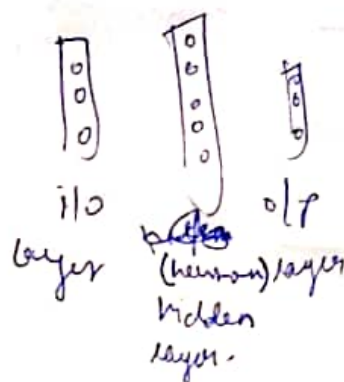 i/o
layer
(neuron)
hidden
layer.
o/p
layer